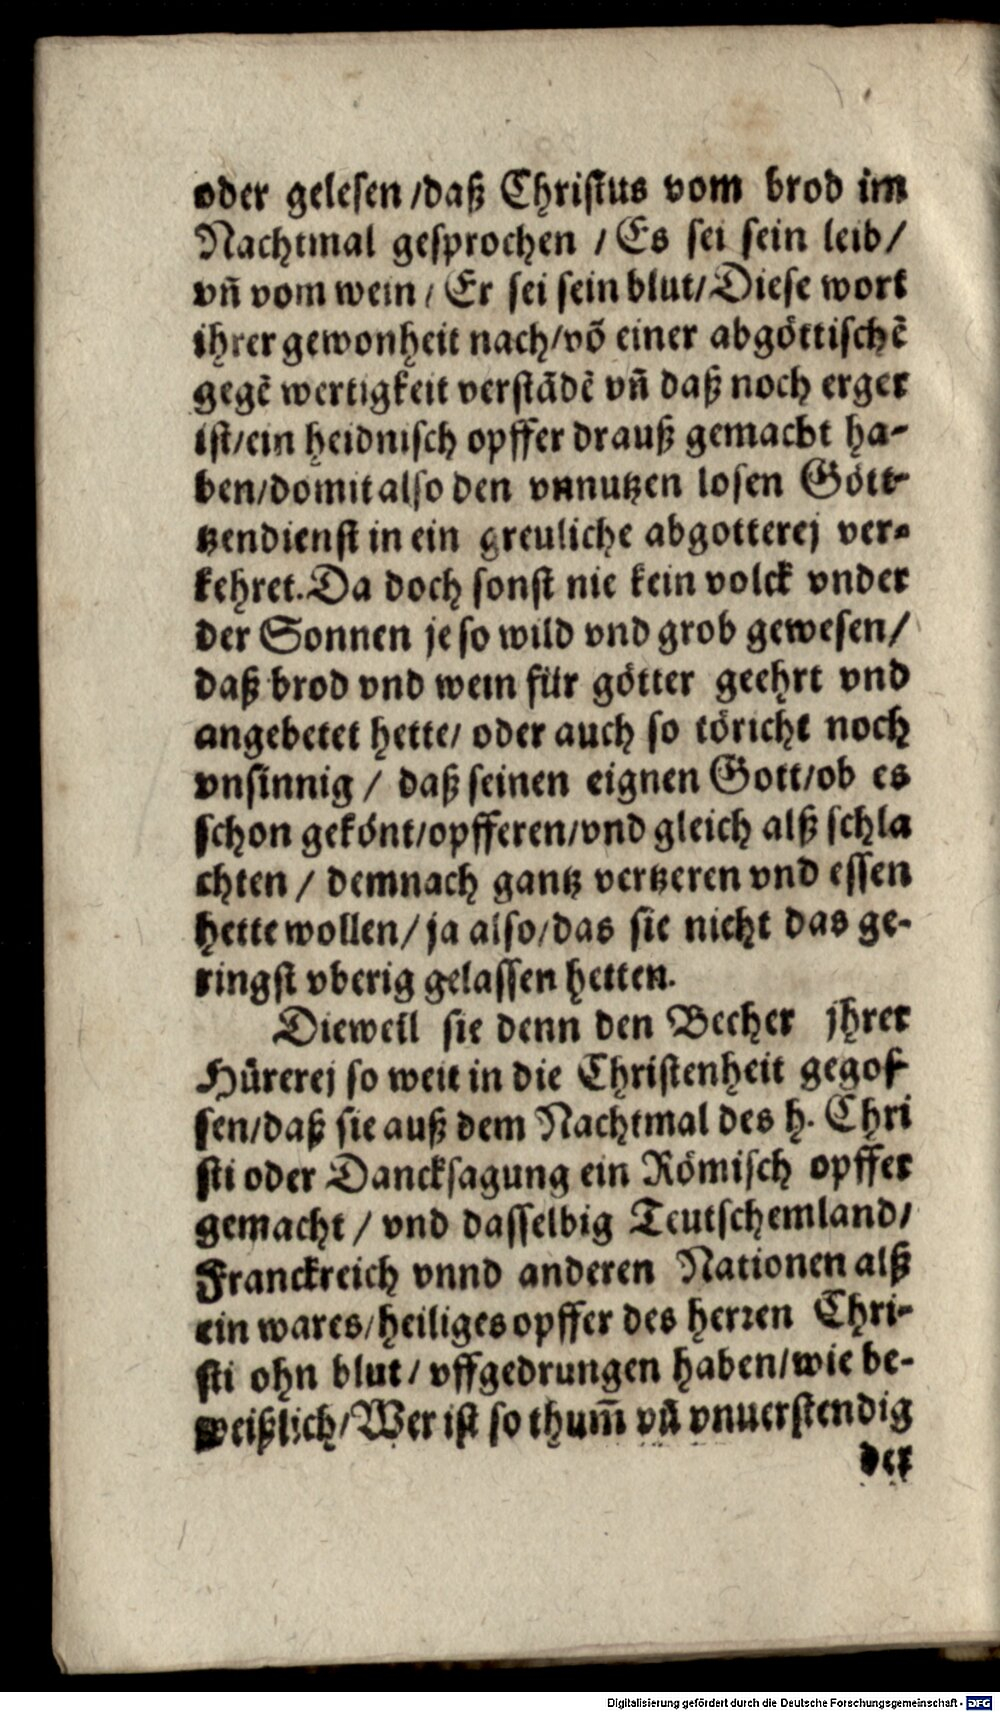 oder gelesen /daß Christus vom brod im
Nachtmal gesprochen / Es sei sein leib/
vñ vom wein / Er sei sein blut/ Diese wort
ihrer gewonheit nach/võ einer abgöttischẽ
gegẽ wertigkeit verstãdẽ vñ daß noch erger
ist/ein heidnisch opffer drauß gemacht ha-
ben/domit also den vnnutzen losen Gött-
tzendienst in ein greuliche abgotterej ver-
kehret. Da doch sonst nie kein volck vnder
der Sonnen je so wild vnd grob gewesen/
daß brod vnd wein für götter geehrt vnd
angebetet hette/ oder auch so töricht noch
vnsinnig / daß seinen eignen Gott/ob es
schon gekönt/opfferen/vnd gleich alß schla
chten / demnach gantz vertzeren vnd essen
hette wollen/ ja also/das sie nicht das ge-
ringst vberig gelassen hetten.
Dieweil sie denn den Becher jhrer
Hürerej so weit in die Christenheit gegos
sen/daß sie auß dem Nachtmal des h. Chri
sti oder Dancksagung ein Römisch opffer
gemacht / vnd dasselbig Teutschemland/
Franckreich vnnd anderen Nationen alß
ein wares/heiliges opffer des herren Chri-
sti ohn blut / vffgedrungen haben/wie be-
weißlich/Wer ist so thum̃ vñ vnuerstendig
der
Digitalisierung gefördert durch die Deutsche Forschungsgemeinschaft - DFG